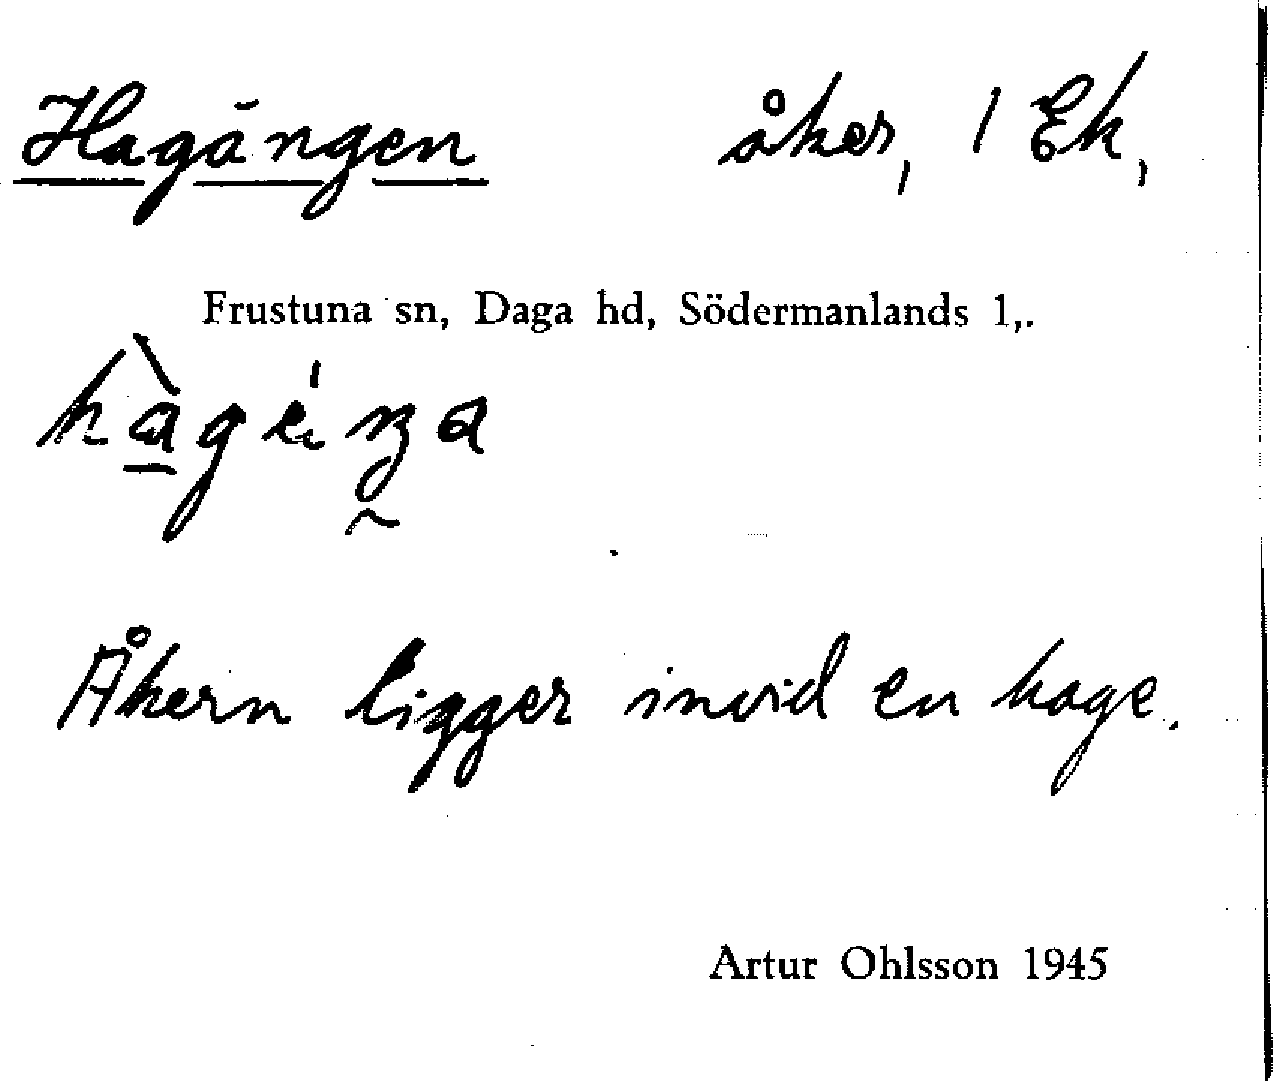 Hagängen åker, 1 Ek,
Frustuna sn, Daga hd, Södermanlands l,.
Åkern ligger invid en hage.
Artur Ohlsson 1945